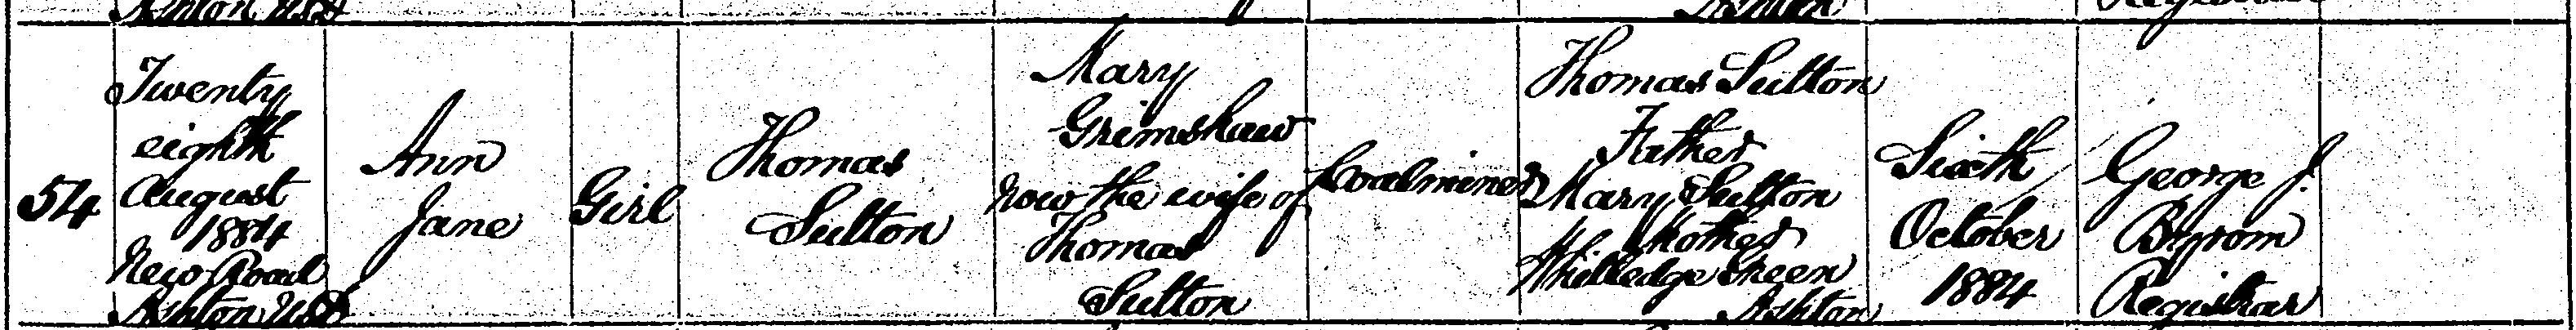 Ashton USD
Ashton
Registrar
54
Twenty
eighth
August
1884
New Road
Ashton USD
Ann
Jane
Girl
Thomas
Sutton
Mary
Grimshaw
now the wife of
Thomas
Sutton
Coalminer
Thomas Sutton
Father
Mary Sutton
Mother
Whilledge Green
Ashton
Sixth
October
1884
George J.
Byrom
Registrar